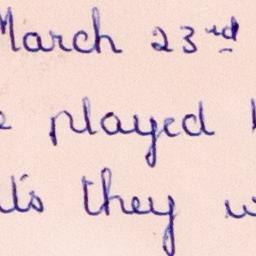 March 23rd
played
they